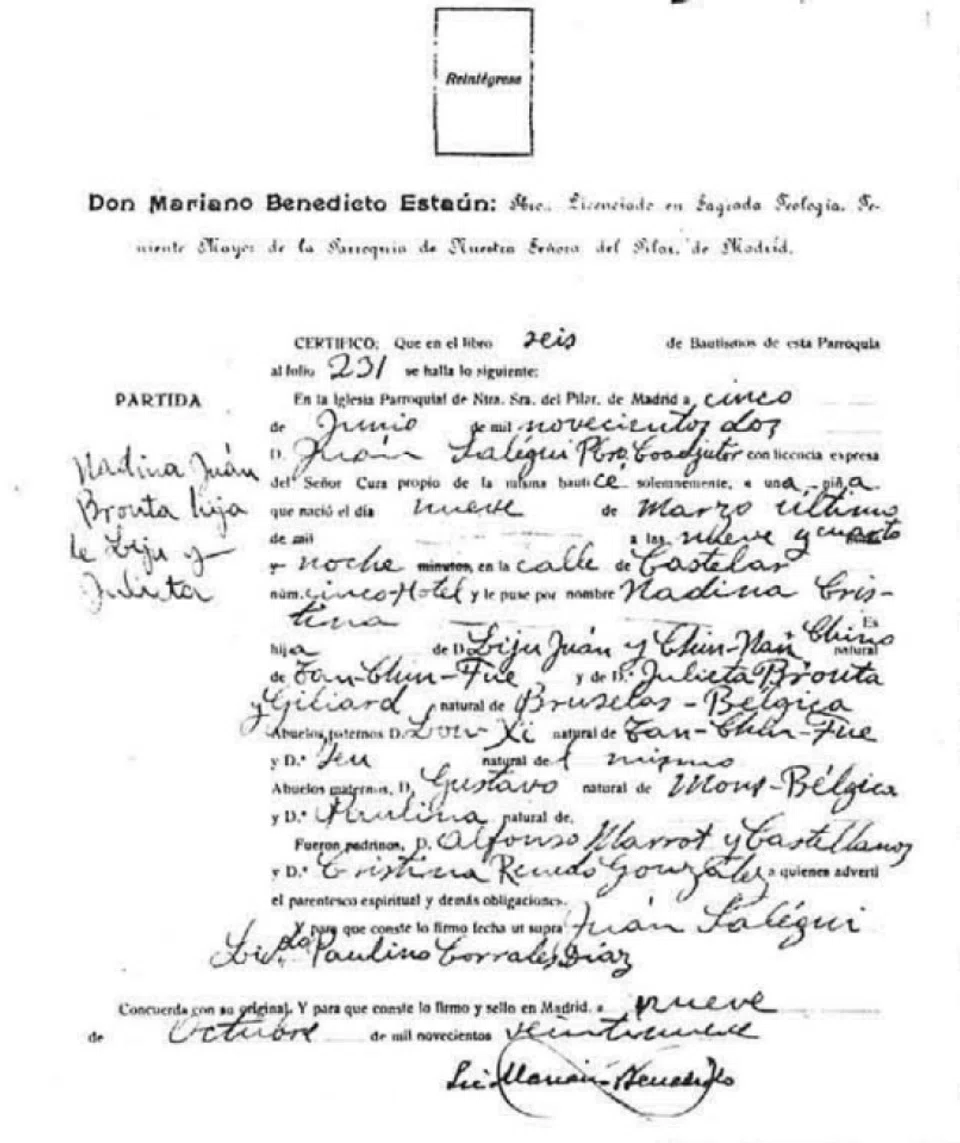 Reintégrese
Don Mariano Benedicto Estaún: Pbro. Licenciado en Sagrada Teología, Te-
niente Mayor de la Parroquia de Nuestra Señora del Pilar, de Madrid.
CERTIFICO: Que en el libro seis de Bautismos de esta Parroquia
al folio 231 se halla lo siguiente:
PARTIDA
Nadina Juán
Bronta hija
de Liju y
Julieta
En la Iglesia Parroquial de Ntra. Sra. del Pilar, de Madrid a cinco
de Junio de mil novecientos dos
D. Juán Salégui Pbro. Coadjutor con licencia expresa
del Señor Cura propio de la misma bauticé solemnemente, a una niña
que nació el día nueve de Marzo último
de mil a las nueve y cuarto
y noche minutos, en la calle de Castelar
núm. cinco-Hotel y le puse por nombre Nadina Cris-
tina Es
hija de D. Liju Juán y Chin-Nan Chino natural
de Tan-Chun-Fue y de D.ª Julieta Bronta
y Giliard natural de Bruselas-Bélgica
Abuelos paternos D. Lou-Xi natural de Tan-Chun-Fue
y D.ª Yeu natural de l mismo
Abuelos maternos, D. Gustavo natural de Mons-Bélgica
y D.ª Paulina natural de.
Fueron padrinos, D. Alfonso Marrot y Castellanos
y D.ª Cristina Renedo González a quienes advertí
el parentesco espiritual y demás obligaciones.
Y para que conste lo firmo fecha ut supra Juán Salégui
Licdo Paulino Corrales Díaz
Concuerda con su original. Y para que conste lo firmo y sello en Madrid, a nueve
de Octubre de mil novecientos veintinueve
Lic. Mariano Benedicto